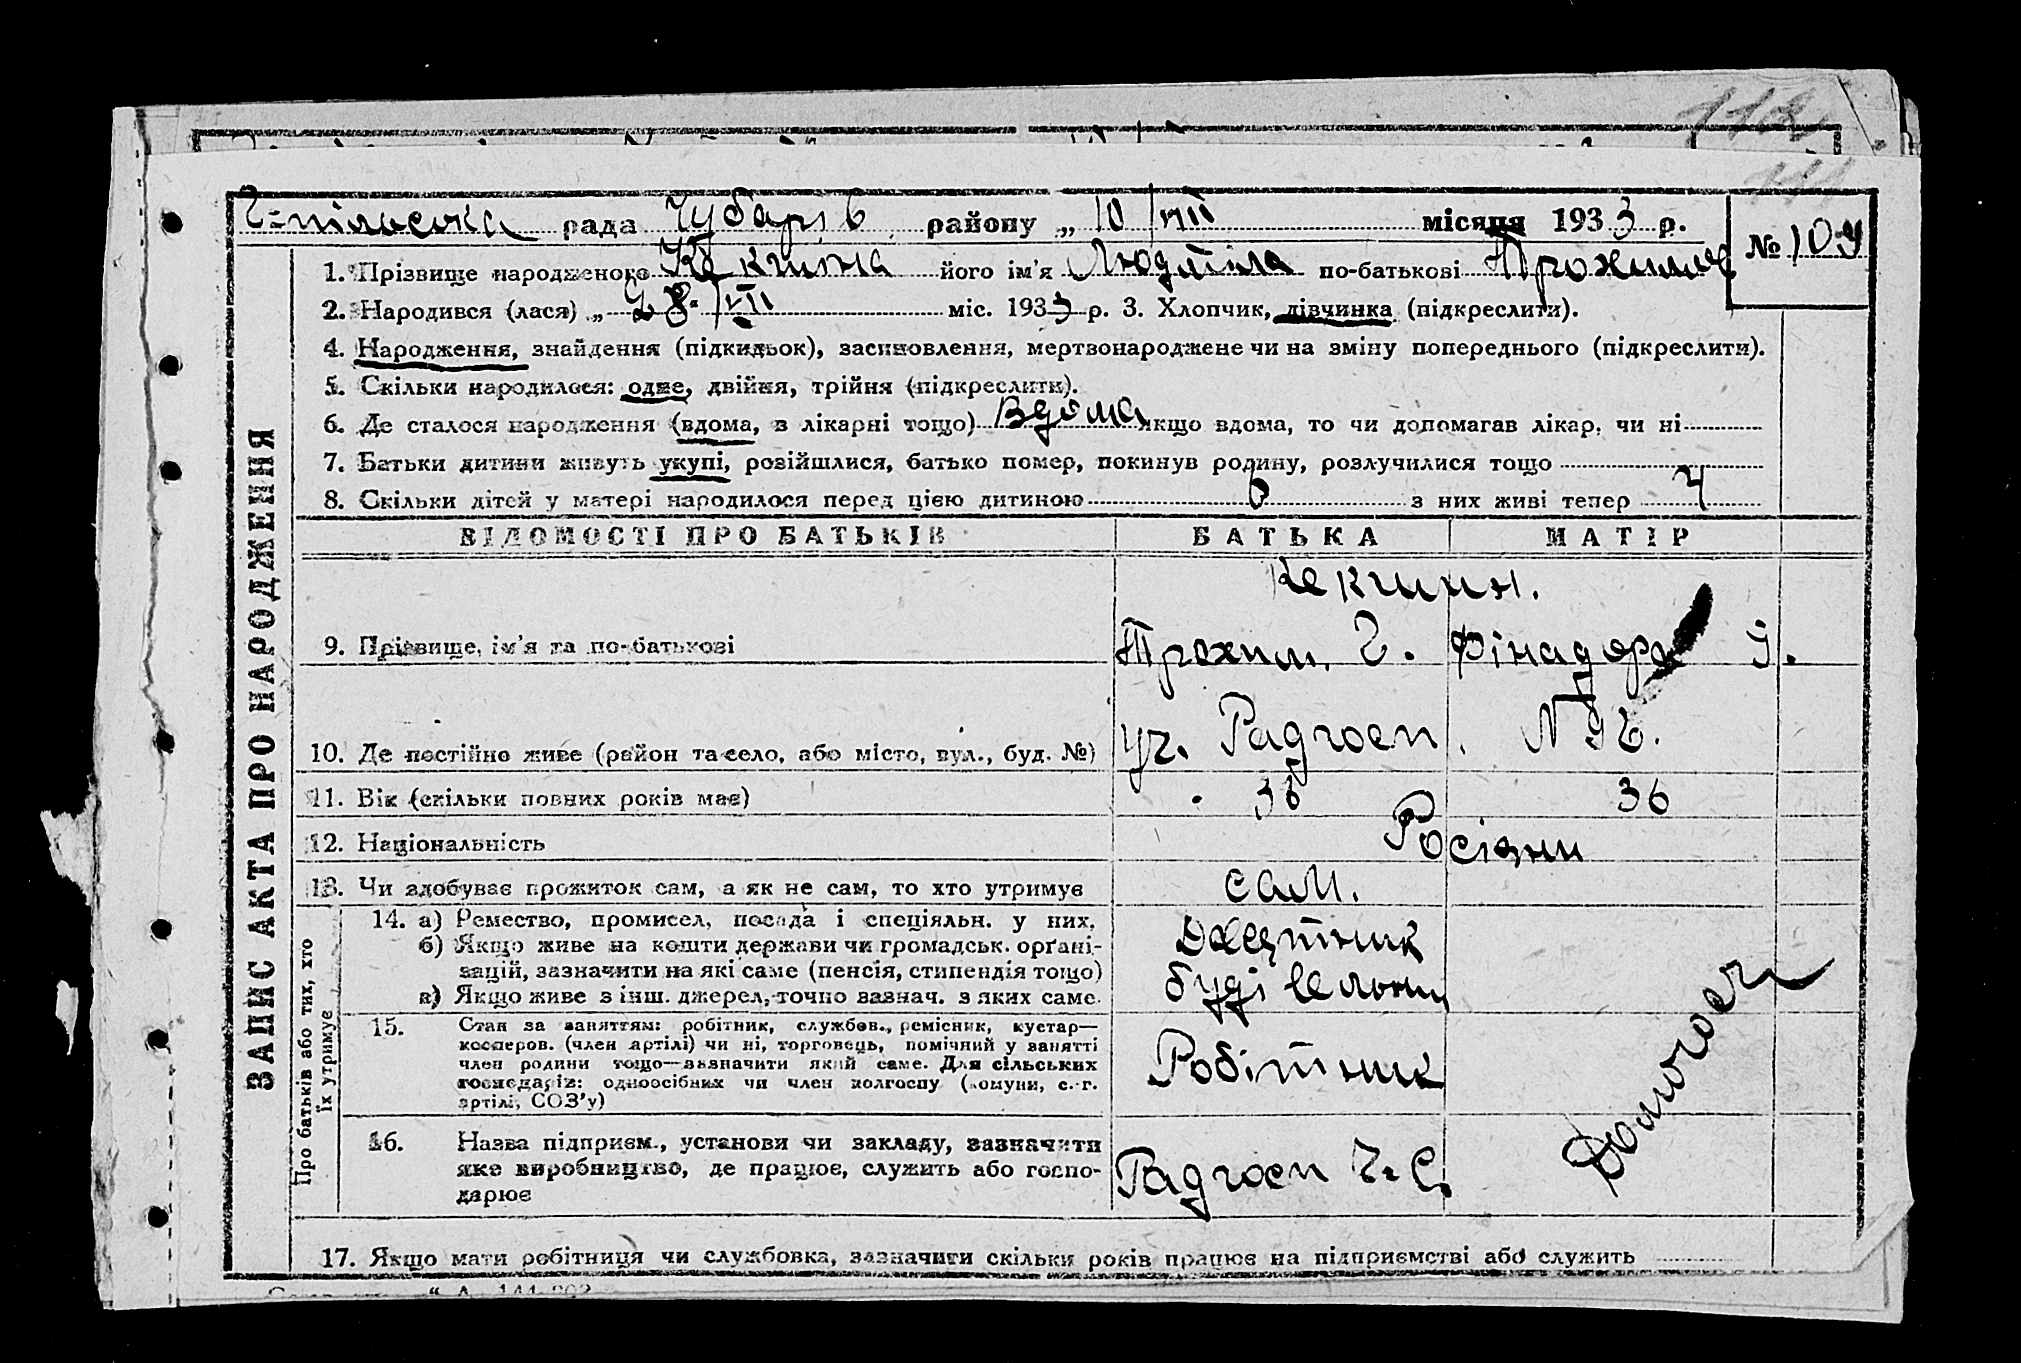 112
111
Г-пільська рада Чубарів району „ 10/VIII місяця 1933 р.
№ 109
1. Прізвище народженого Кекшина його ім’я Людміла по-батькові Трохимов
2. Народився (лася) „ 28/VII міс. 1933 р. 3. Хлопчик, дівчинка (підкреслити).
4. Народження, знайдення (підкидьок), засиновлення, мертвонароджене чи на зміну попереднього (підкреслити).
5. Скільки народилося: одне, двійня, трійня (підкреслити).
6. Де сталося народження (вдома, в лікарні тощо) Вдома якщо вдома, то чи допомагав лікар, чи ні
7. Батьки дитини живуть укупі, розійшлися, батько помер, покинув родину, розлучилися тощо
8. Скільки дітей у матері народилося перед цією дитиною 6 з них живі тепер 4
ЗАПИС АКТА ПРО НАРОДЖЕННЯ
ВІДОМОСТІ ПРО БАТЬКІВ БАТЬКА МАТІР
Кекшин.
9. Прізвище, ім’я та по-батькові Трохим. Г. І.
10. Де постійно живе (район та село, або місто, вул., буд. №) уч. Радгосп.
11. Вік (скільки повних років має) 36 36
12. Національність Росіяни
13. Чи здобуває прожиток сам, а як не сам, то хто утримує сам.
Про батьків або тих, хто
їх утримує
14. а) Ремество, промисел, посада і спеціяльн. у них.
б) Якщо живе на кошти держави чи громадськ. орґані-
зацій, зазначити на які саме (пенсія, стипендія тощо)
в) Якщо живе з інш. джерел, точно зазнач. з яких саме.
будівельник
15. Стан за заняттям: робітник, службов., ремісник, кустар—
коопеpов. (член артілі) чи ні, торговець, помічний у занятті
член родини тощо—зазначити який саме. Для сільських
господарів: одноосібник чи член колгоспу (комуни, с.-г.
артілі, СОЗ’у)
Робітник
16. Назва підприєм., установи чи закладу, зазначити
яке виробництво, де працює, служить або госпо-
дарює
Радгосп Ч. С.
Домогосп
17. Якщо мати робітниця чи службовка, зазначити скільки років працює на підприємстві або служить